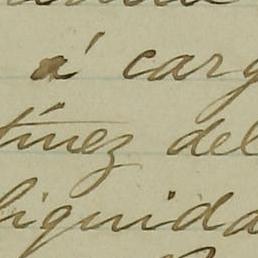 á carg
tínez del
liquida